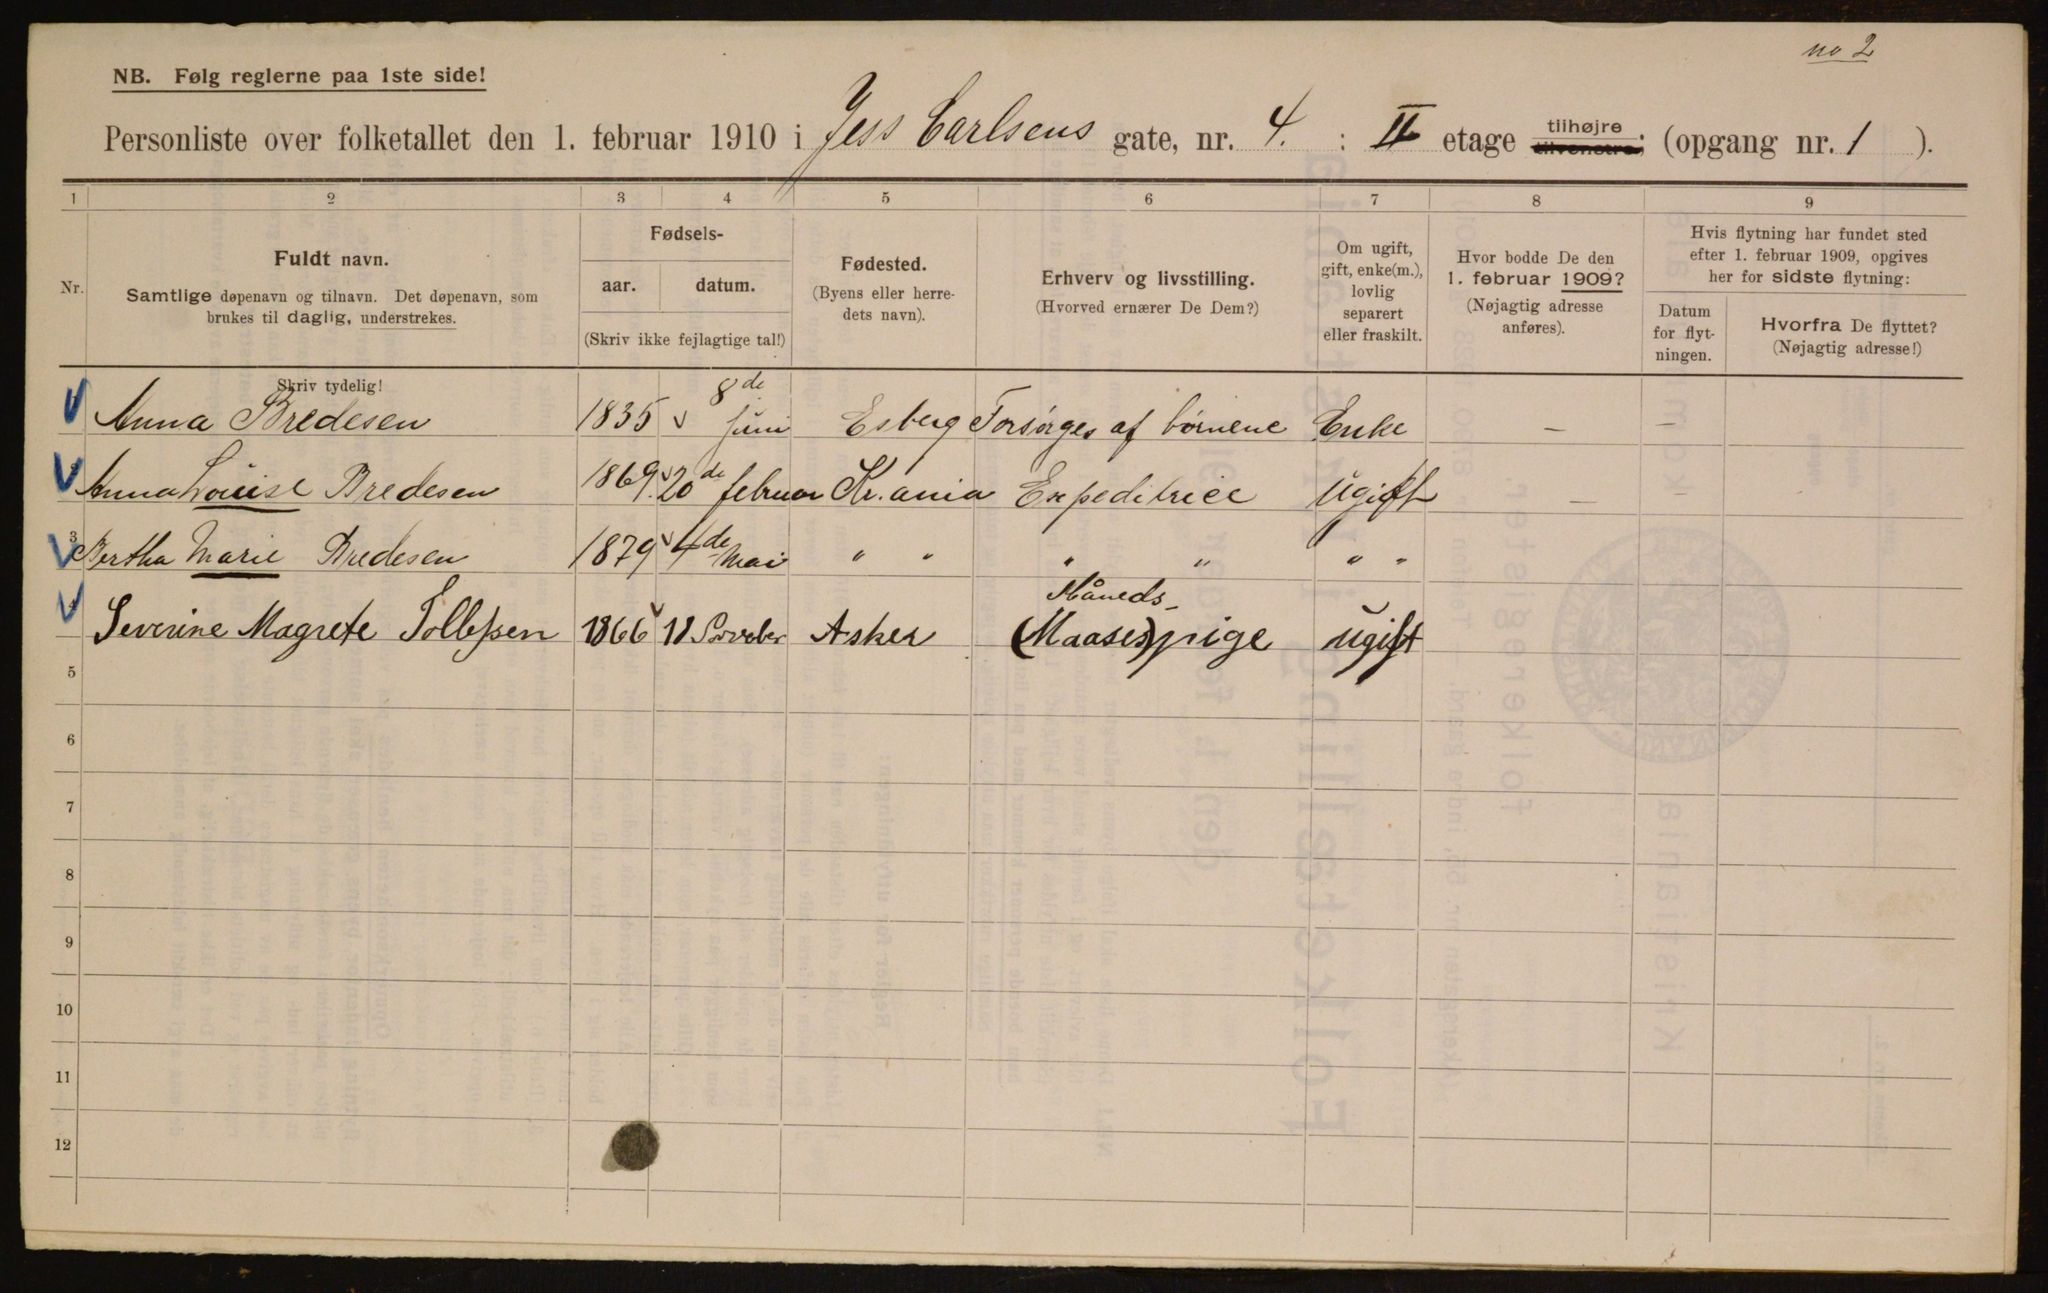 no 2
NB. Følg reglerne paa 1ste side!
Personliste over folketallet den 1. februar 1910 i Jess Carlsens gate, nr. 4. : II etage tilhøjre tilvenstre; (opgang nr. 1 ).
1 2 3 4 5 6 7 8 9
Nr.
Fuldt navn.
Samtlige døpenavn og tilnavn. Det døpenavn, som
brukes til daglig, understrekes.
Skriv tydelig!
Fødsels-
aar. datum.
(Skriv ikke fejlagtige tal!)
Fødested.
(Byens eller herre-
dets navn).
Erhverv og livsstilling.
(Hvorved ernærer De Dem?)
Om ugift,
gift, enke(m.),
lovlig
separert
eller fraskilt.
Hvor bodde De den
1. februar 1909?
(Nøjagtig adresse
anføres).
Hvis flytning har fundet sted
efter 1. februar 1909, opgives
her for sidste flytning:
Datum
for flyt-
ningen.
Hvorfra De flyttet?
(Nøjagtig adresse!)
Anna Bredesen 1835 8de Juni Esberg Forsørges af børnene Enke — —
Anna Louise Bredesen 1869. 20de februar Kr.ania Expeditrice Ugift —
3 Bertha Marie Bredesen 1879 4de Mai " " " " " "
Severine Magrete Tollefsen 1866 18 Asker (Maases)pige Måneds- ugift
5
6
7
8
9
10
11
12